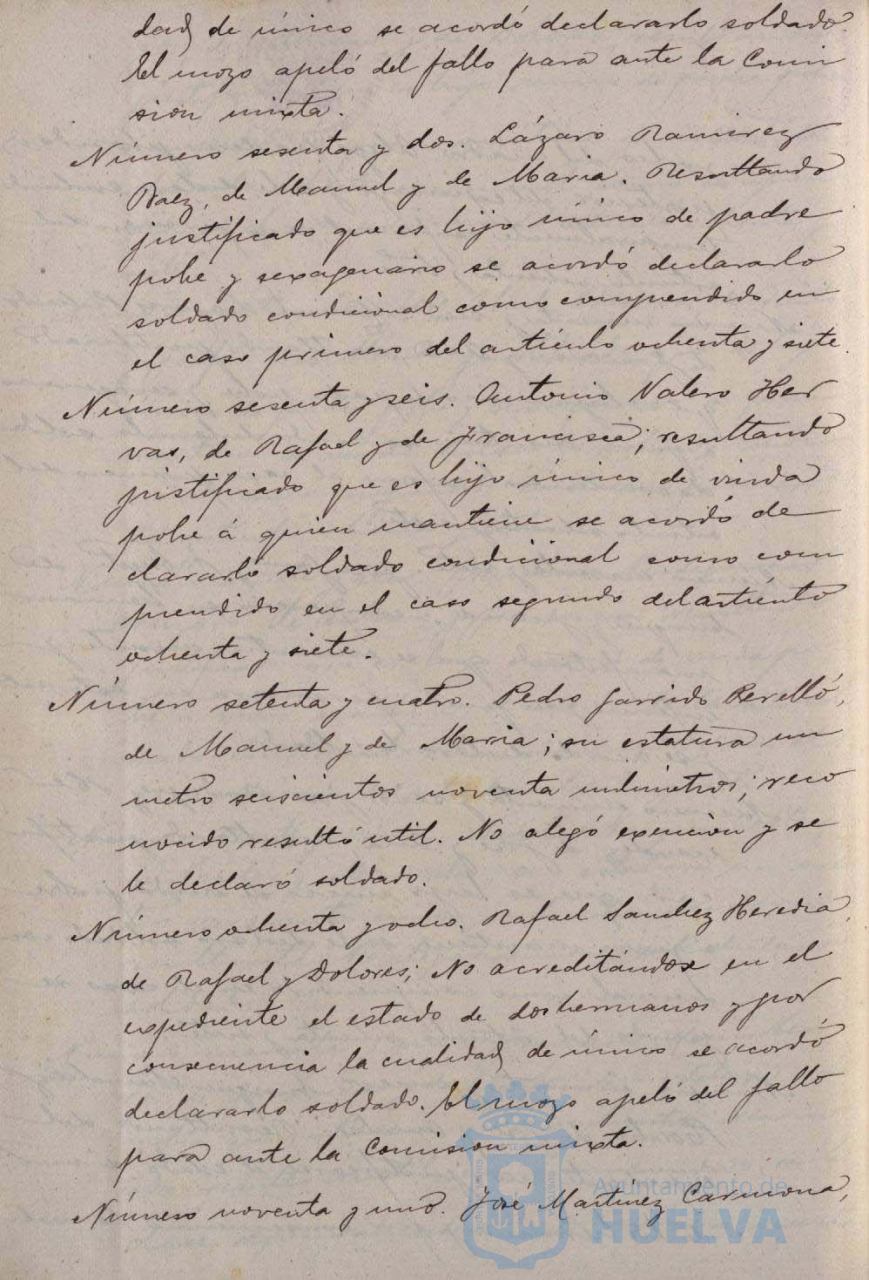 dad de único se acordó declararlo soldado.
El mozo apeló del fallo para ante la Comi
sion mixta.
Número sesenta y dos. Lázaro Ramirez
Baez, de Manuel y de Maria. Resultando
justificado que es hijo único de padre
pobre y sexagenario se acordó declararlo
soldado condicional como comprendido en
el caso primero del artículo ochenta y siete.
Número sesenta y seis. Antonio Valero Her
vas, de Rafael y de Francisca; resultando
justificado que es hijo único de viuda
pobre á quien mantiene se acordó de
clararlo soldado condicional como com
prendido en el caso segundo del artículo
ochenta y siete.
Número setenta y cuatro. Pedro Garrido Perelló,
de Manuel y de Maria; su estatura un
metro seiscientos noventa milimetros; reco
nocido resultó util. No alegó exencion y se
le declaró soldado.
Número ochenta y ocho. Rafael Sanchez Heredia,
de Rafael y Dolores; No acreditándose en el
expediente el estado de dos hermanos y por
consecuencia la cualidad de único se acordó
declararlo soldado. El mozo apeló del fallo
para ante la Comision mixta.
Número noventa y uno. José Martínez Carmona,
Ayuntamiento de
HUELVA